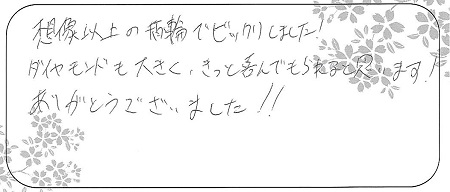 想像以上の指輪でビックリしました!
ダイヤモンドも大きく、きっと喜んでもらえると思います!
ありがとうございました!!